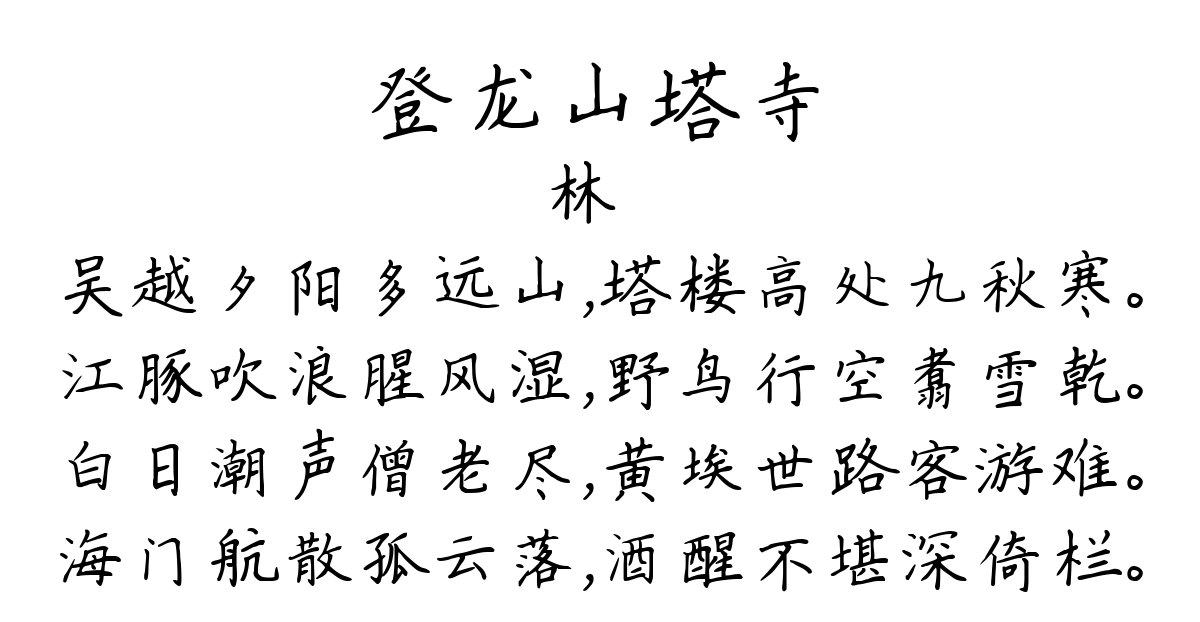 登龙山塔寺
林
吴越夕阳多远山,塔楼高处九秋寒。
江豚吹浪腥风湿,野鸟行空翥雪乾。
白日潮声僧老尽,黄埃世路客游难。
海门航散孤云落,酒醒不堪深倚栏。